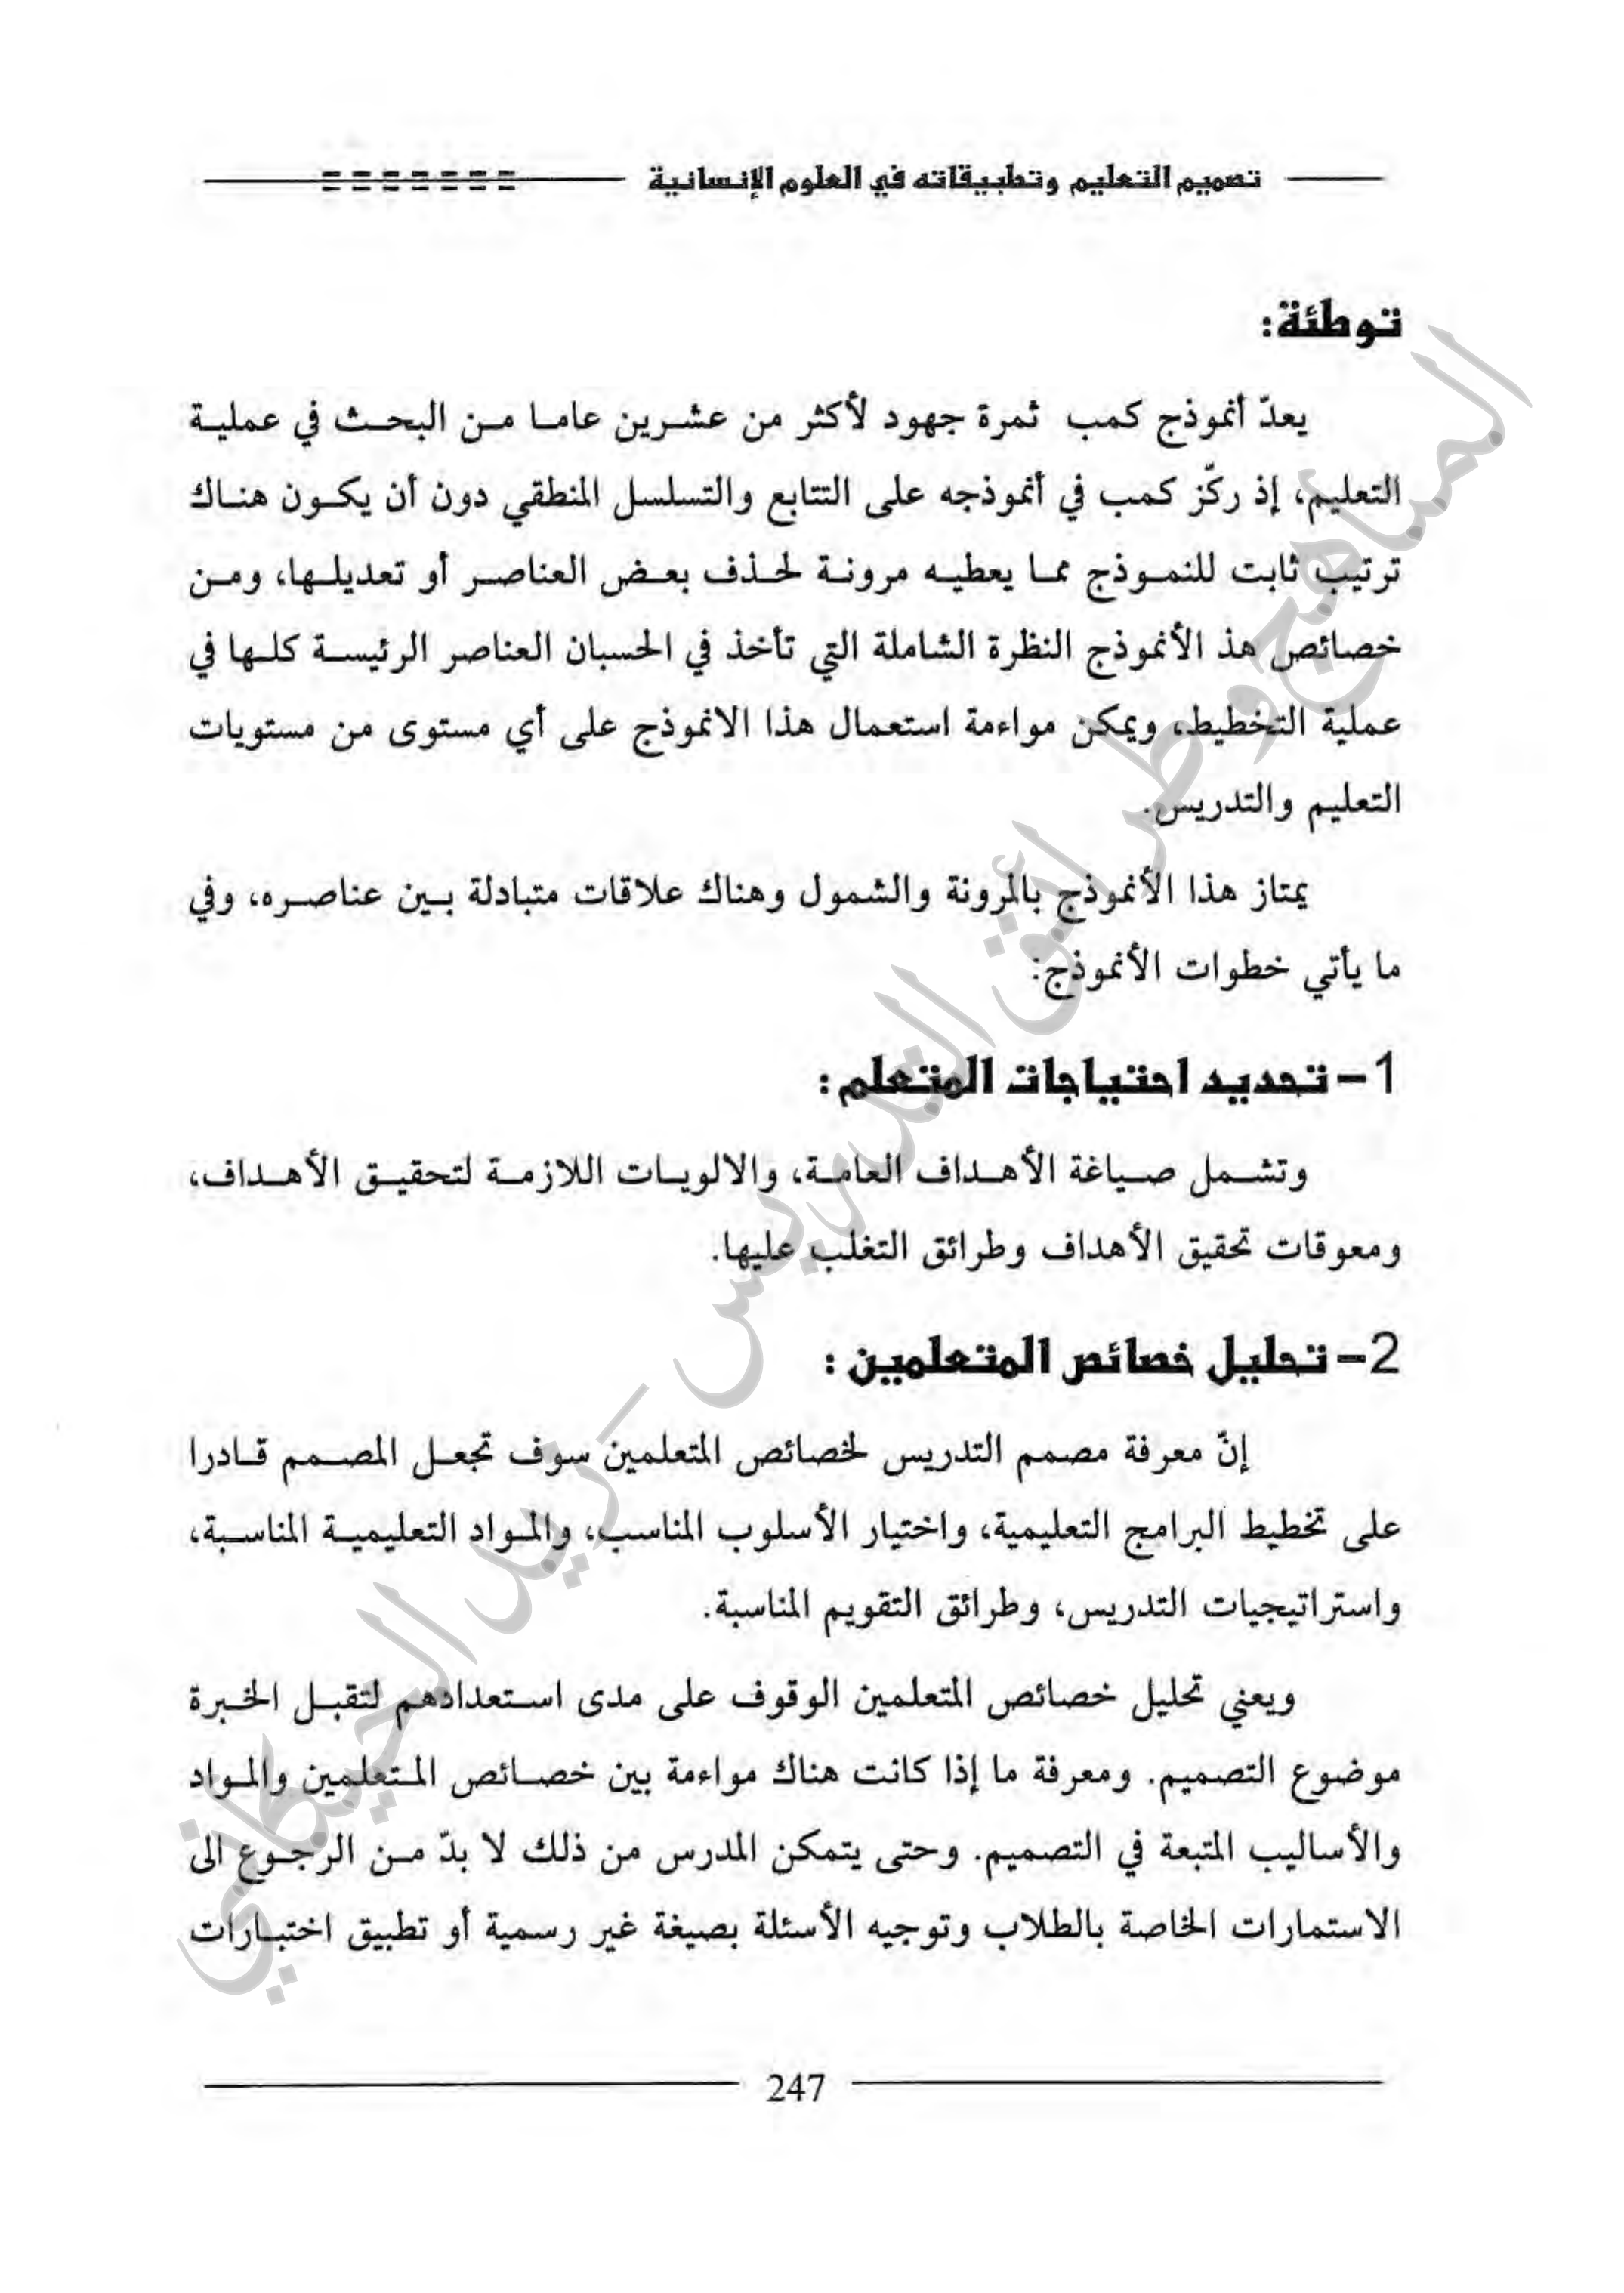 تصميم التعليم وتطبيقاته في العلوم الإنسانية
توطئة:
يعدّ أنموذج كمب ثمرة جهود لأكثر من عشرين عاما من البحث في عملية
التعليم، إذ ركّز كمب في أنموذجه على التتابع والتسلسل المنطقي دون أن يكون هناك
ترتيب ثابت للنموذج مما يعطيه مرونة لحذف بعض العناصر أو تعديلها، ومن
خصائص هذ الأنموذج النظرة الشاملة التي تأخذ في الحسبان العناصر الرئيسة كلها في
عملية التخطيط، ويمكن مواءمة استعمال هذا الانموذج على أي مستوى من مستويات
التعليم والتدريس.
يمتاز هذا الأنموذج بالمرونة والشمول وهناك علاقات متبادلة بين عناصره، وفي
ما يأتي خطوات الأنموذج:
1- تحديد احتياجات المتعلم :
وتشمل صياغة الأهداف العامة، والالويات اللازمة لتحقيق الأهداف،
ومعوقات تحقيق الأهداف وطرائق التغلب عليها.
2- تحليل خصائص المتعلمين :
إنّ معرفة مصمم التدريس لخصائص المتعلمين سوف تجعل المصمم قادرا
على تخطيط البرامج التعليمية، واختيار الأسلوب المناسب، والمواد التعليمية المناسبة،
واستراتيجيات التدريس، وطرائق التقويم المناسبة.
ويعني تحليل خصائص المتعلمين الوقوف على مدى استعدادهم لتقبل الخبرة
موضوع التصميم. ومعرفة ما إذا كانت هناك مواءمة بين خصائص المتعلمين والمواد
والأساليب المتبعة في التصميم. وحتى يتمكن المدرس من ذلك لا بدّ من الرجوع الى
الاستمارات الخاصة بالطلاب وتوجيه الأسئلة بصيغة غير رسمية أو تطبيق اختبارات
247
المناهج وطرائق التدريس - زيد الحيكاني